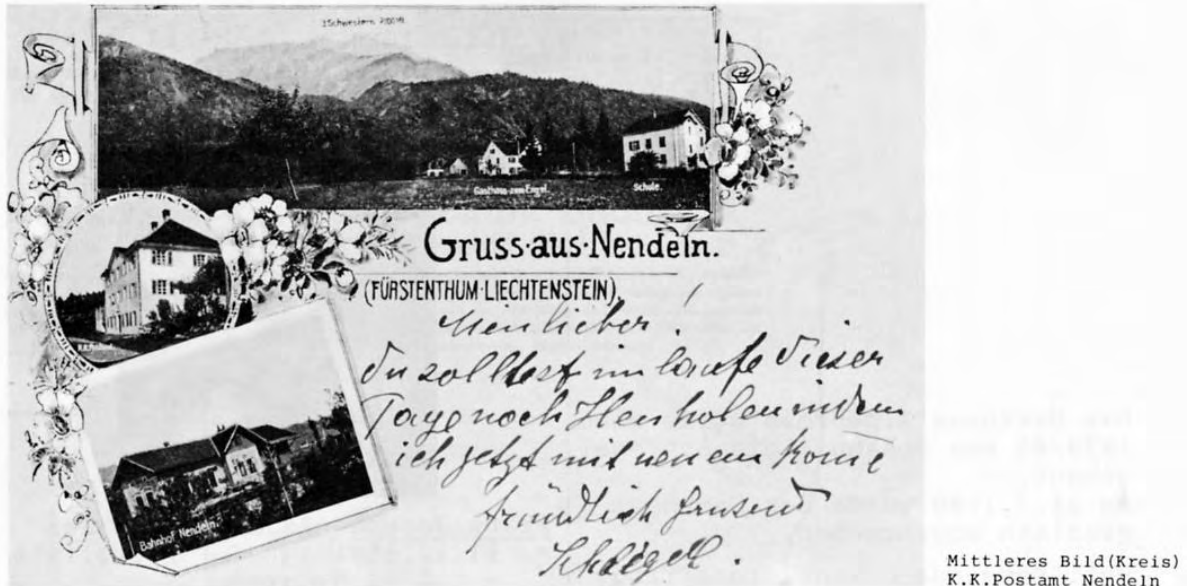 3 Schwestern 2100 M.
Gasthaus zum Engel.
Schule.
Gruss·aus·Nendeln.
(FÜRSTENTHUM·LIECHTENSTEIN).
Mein lieber!
du solltest im laufe dieser
Tage noch Heu holen indem
ich jetzt mit neuem kome
freundlich grusend
K.K. Postamt
Bahnhof Nendeln.
Mittleres Bild(Kreis)
K.K.Postamt Nendeln